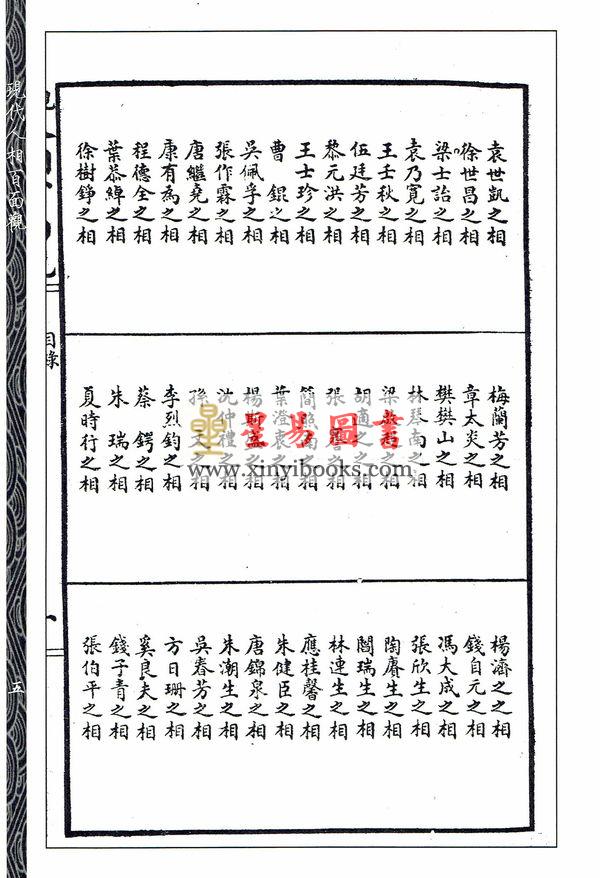 袁世凱之相
徐世昌之相
梁士詒之相
袁乃寬之相
王壬秋之相
伍廷芳之相
黎元洪之相
王士珍之相
曹錕之相
吳佩孚之相
張作霖之相
唐繼堯之相
康有為之相
程德全之相
葉恭綽之相
徐樹錚之相
梅蘭芳之相
章太炎之相
樊樊山之相
林琴南之相
梁之相
胡適之之相
張謇之相
簡照南之相
葉澄衷之相
楊斯盛之相
沈仲禮之相
孫文之相
李烈鈞之相
蔡鍔之相
朱瑞之相
夏時行之相
楊濟之之相
錢自元之相
馮大成之相
張欣生之相
陶賡生之相
閻瑞生之相
林連生之相
應桂馨之相
朱健臣之相
唐錦泉之相
朱潮生之相
吳春芳之相
方日珊之相
奚良夫之相
錢子青之相
張伯平之相
目錄
現代人相百面觀
五
星易圖書
www.xinyibooks.com